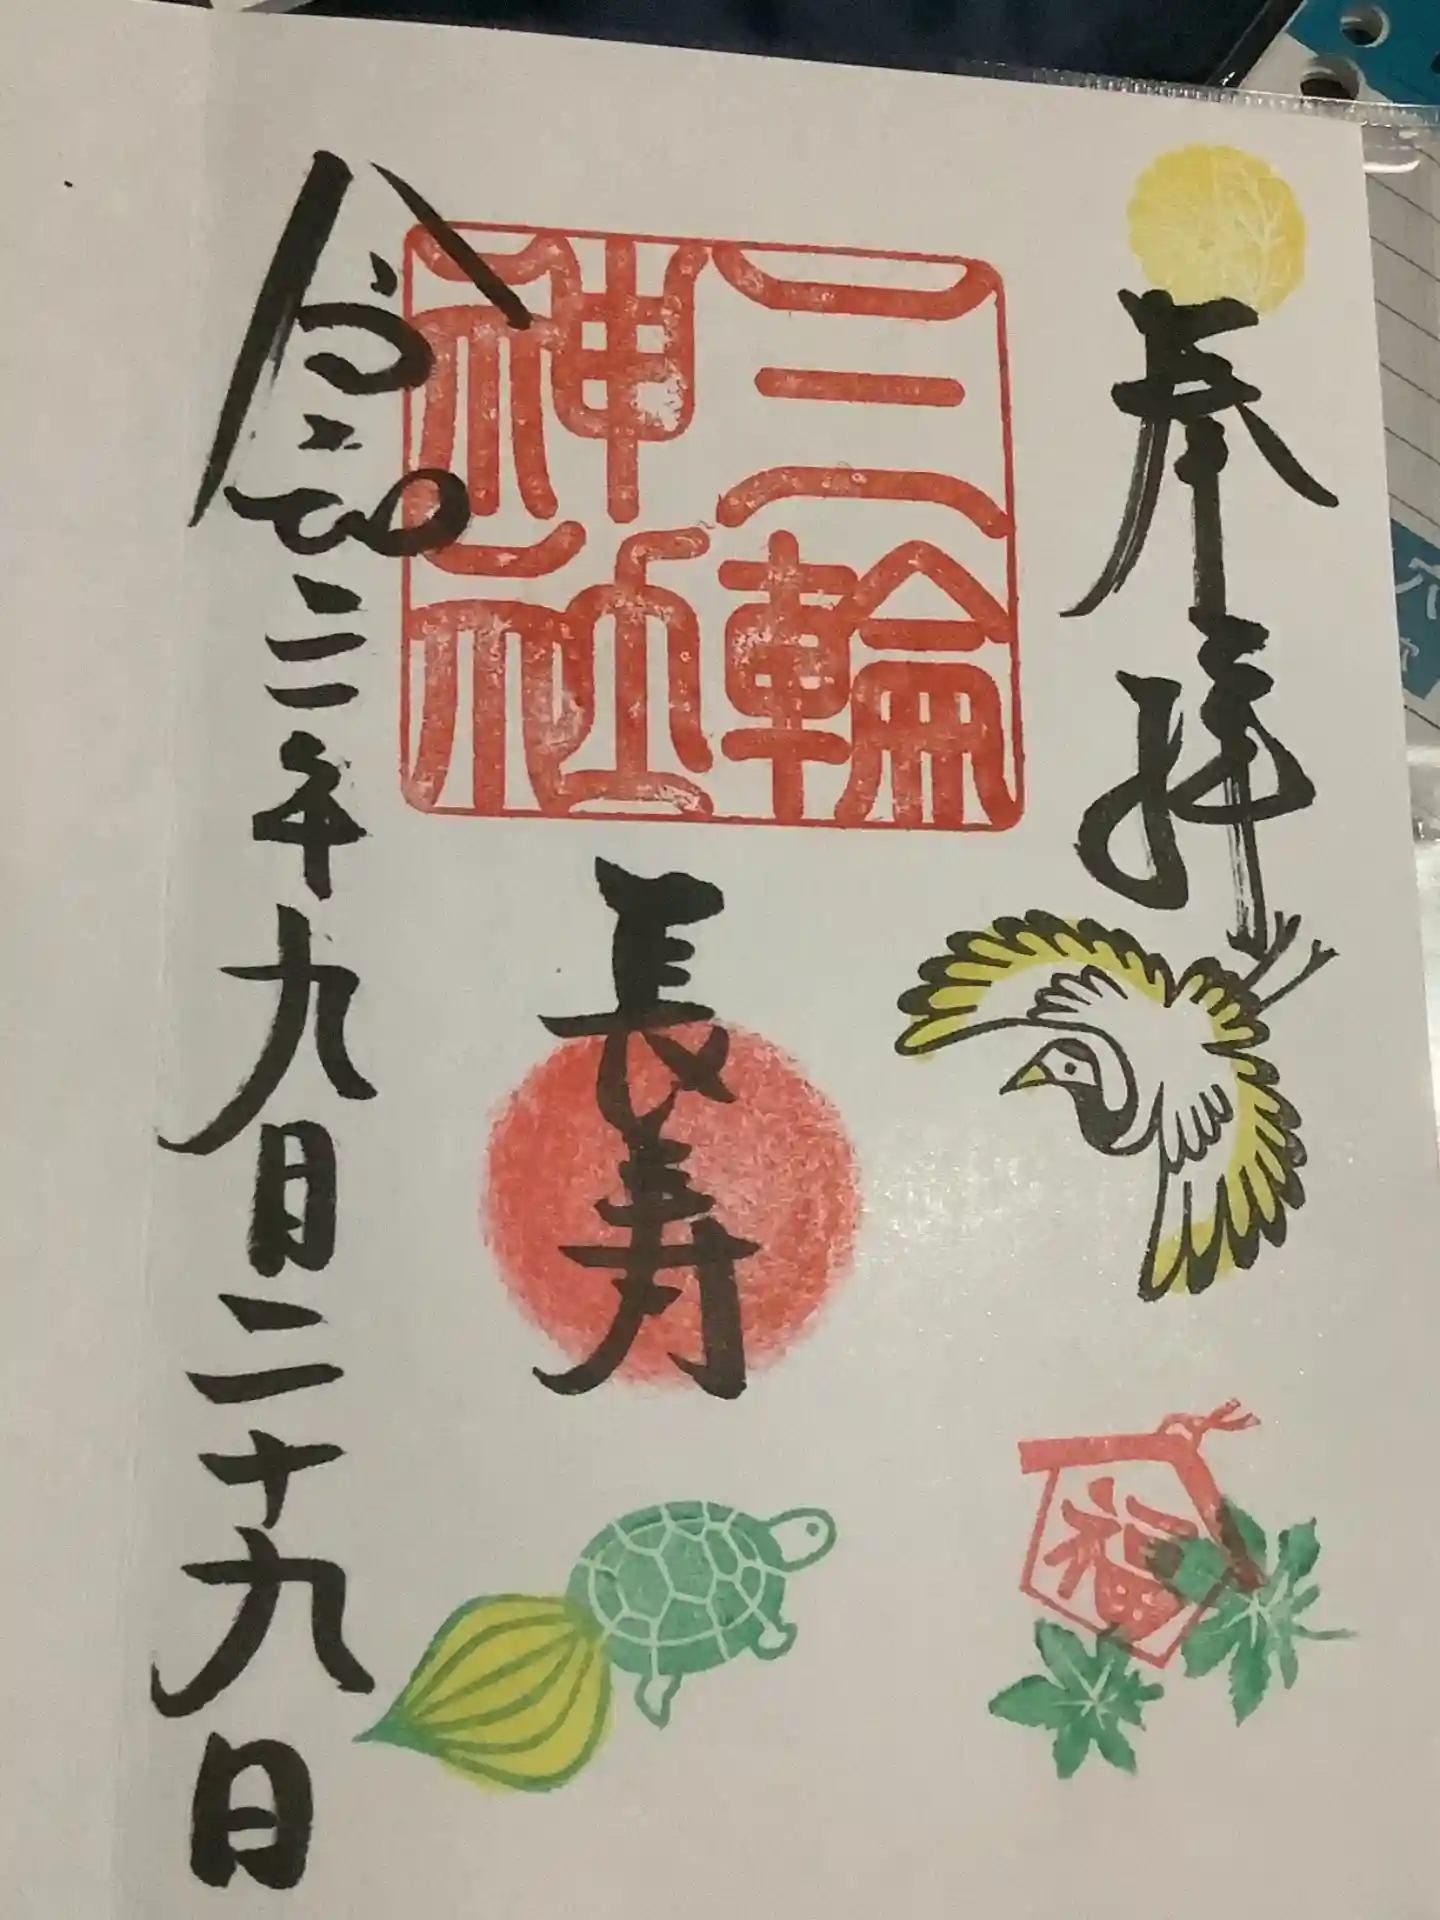 奉拝
三輪
神社
長寿
令和三年九月二十九日
福